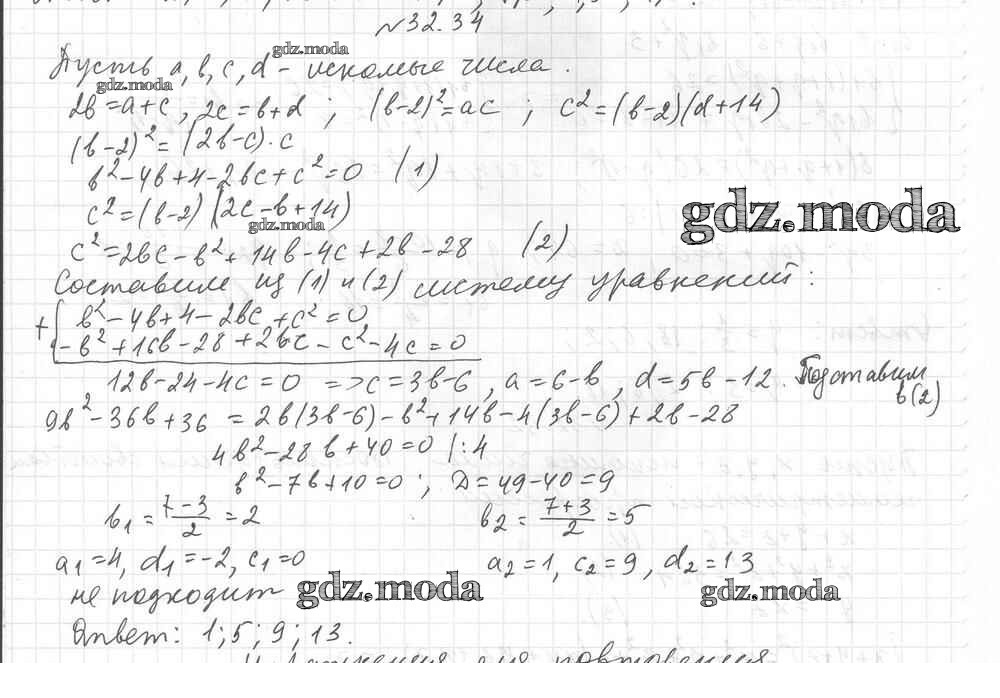 №32.34
gdz.moda
Пусть a, b, c, d – искомые числа.
gdz.moda
2b=a+c, 2c=b+d; (b-2)²=ac; c²=(b-2)(d+14)
(b-2)²=(2b-c)·c
b²-4b+4-2bc+c²=0 (1)
gdz.moda
c²=(b-2)(2c-b+14)
gdz.moda
c²=2bc-b²+14b-4c+2b-28 (2)
Составим из (1) и (2) систему уравнений:
b²-4b+4-2bc+c²=0
+
-b²+16b-28+2bc-c²-4c=0
12b-24-4c=0 => c=3b-6, a=6-b, d=5b-12. Подставим
в (2)
9b²-36b+36=2b(3b-6)-b²+14b-4(3b-6)+2b-28
4b²-28b+40=0 |:4
b²-7b+10=0; D=49-40=9
b₁=(7-3)/2=2 b₂=(7+3)/2=5
a₁=4, d₁=-2, c₁=0 a₂=1, c₂=9, d₂=13
не подходит gdz.moda gdz.moda
Ответ: 1; 5; 9; 13.